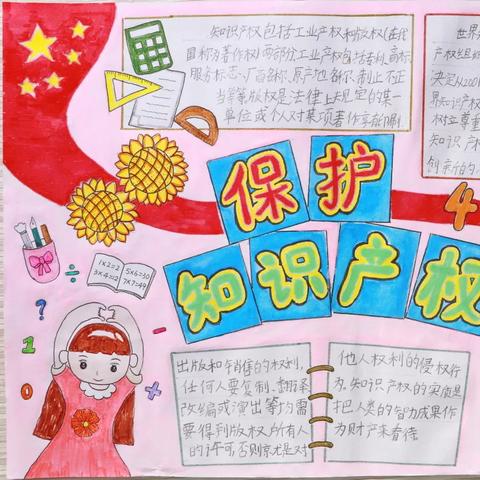 知识产权包括工业产权和版权(在我
国称为著作权)两部分,工业产权包括专利、商标、
服务标志、厂商名称、原产地名称、制止不正
当竞争等,版权是法律上规定的某一
单位或个人对某项著作享有印刷
世界
产权组织
决定从2001
界知识产权
树立尊重
知识产权
创新的
4
保护
知识产权
1×2=2
3×4=12
5×6=30
7×7=49
÷
?
1
-
0
+
出版和销售的权利,
任何人要复制、翻译、
改编或演出等均需
要得到版权所有人
的许可,否则就是对
他人权利的侵权行
为。知识产权的实质是
把人类的智力成果作
为财产来看待